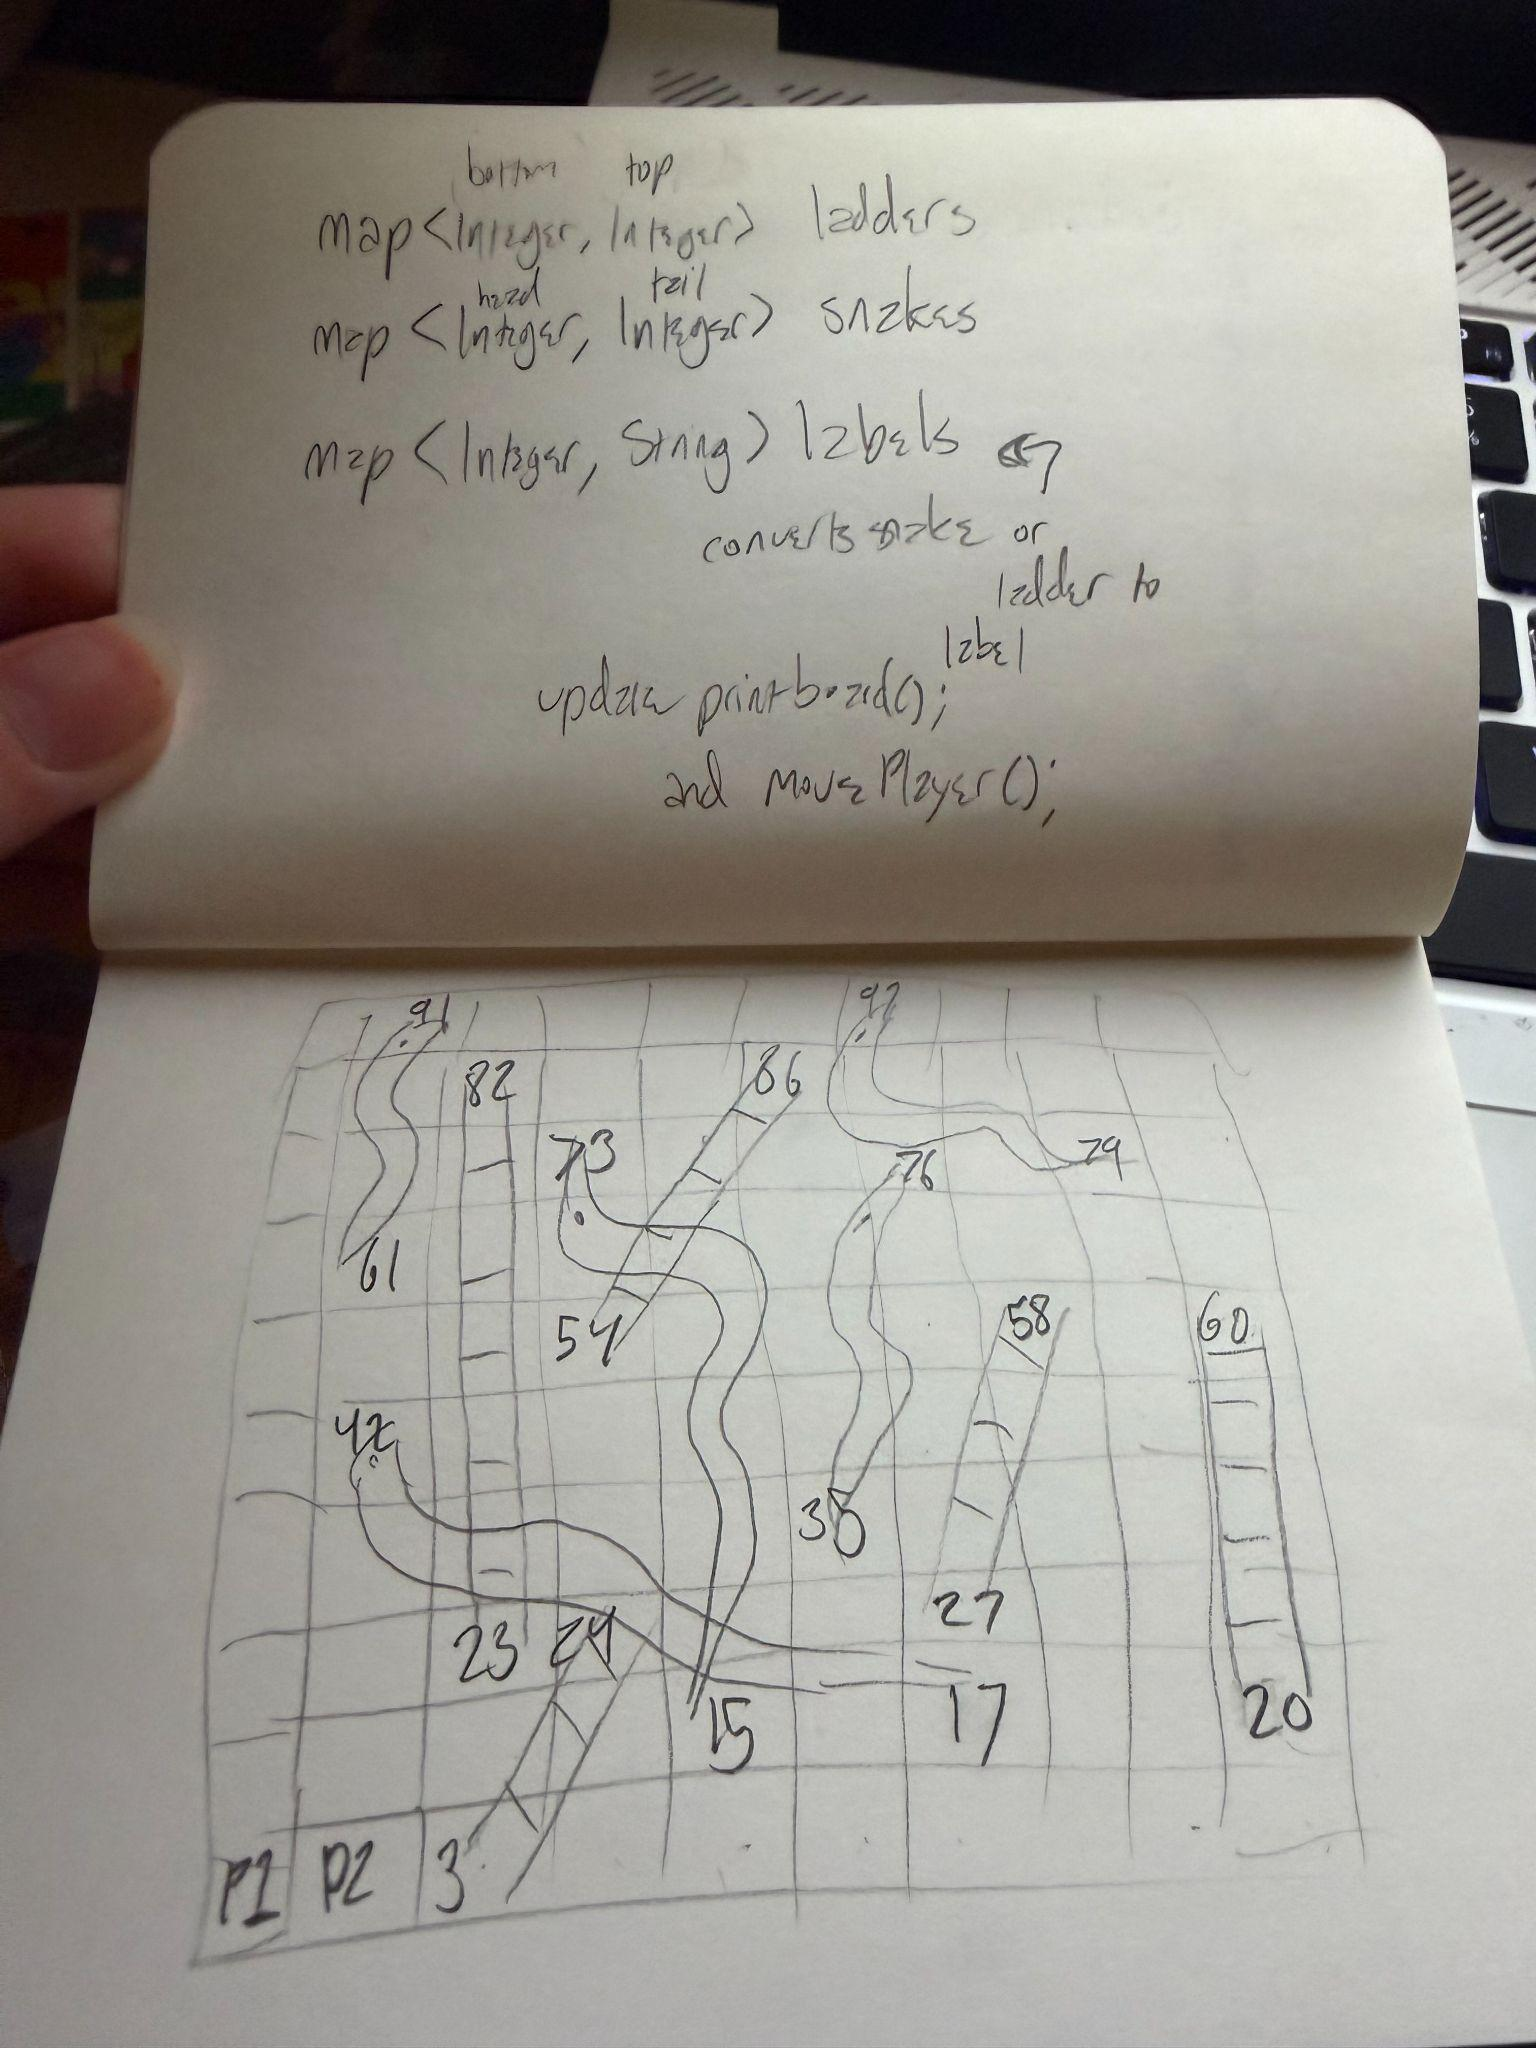 bottom top
map <Integer, Integer> ladders
head tail
map <Integer, Integer> snakes
map <Integer, String> labels
converts snake or
ladder to
label
update printboard();
and movePlayer();
91 97
82 86
73 76 79
61
54 58 60
42
35
27
23 24
15 17 20
P1 P2 3